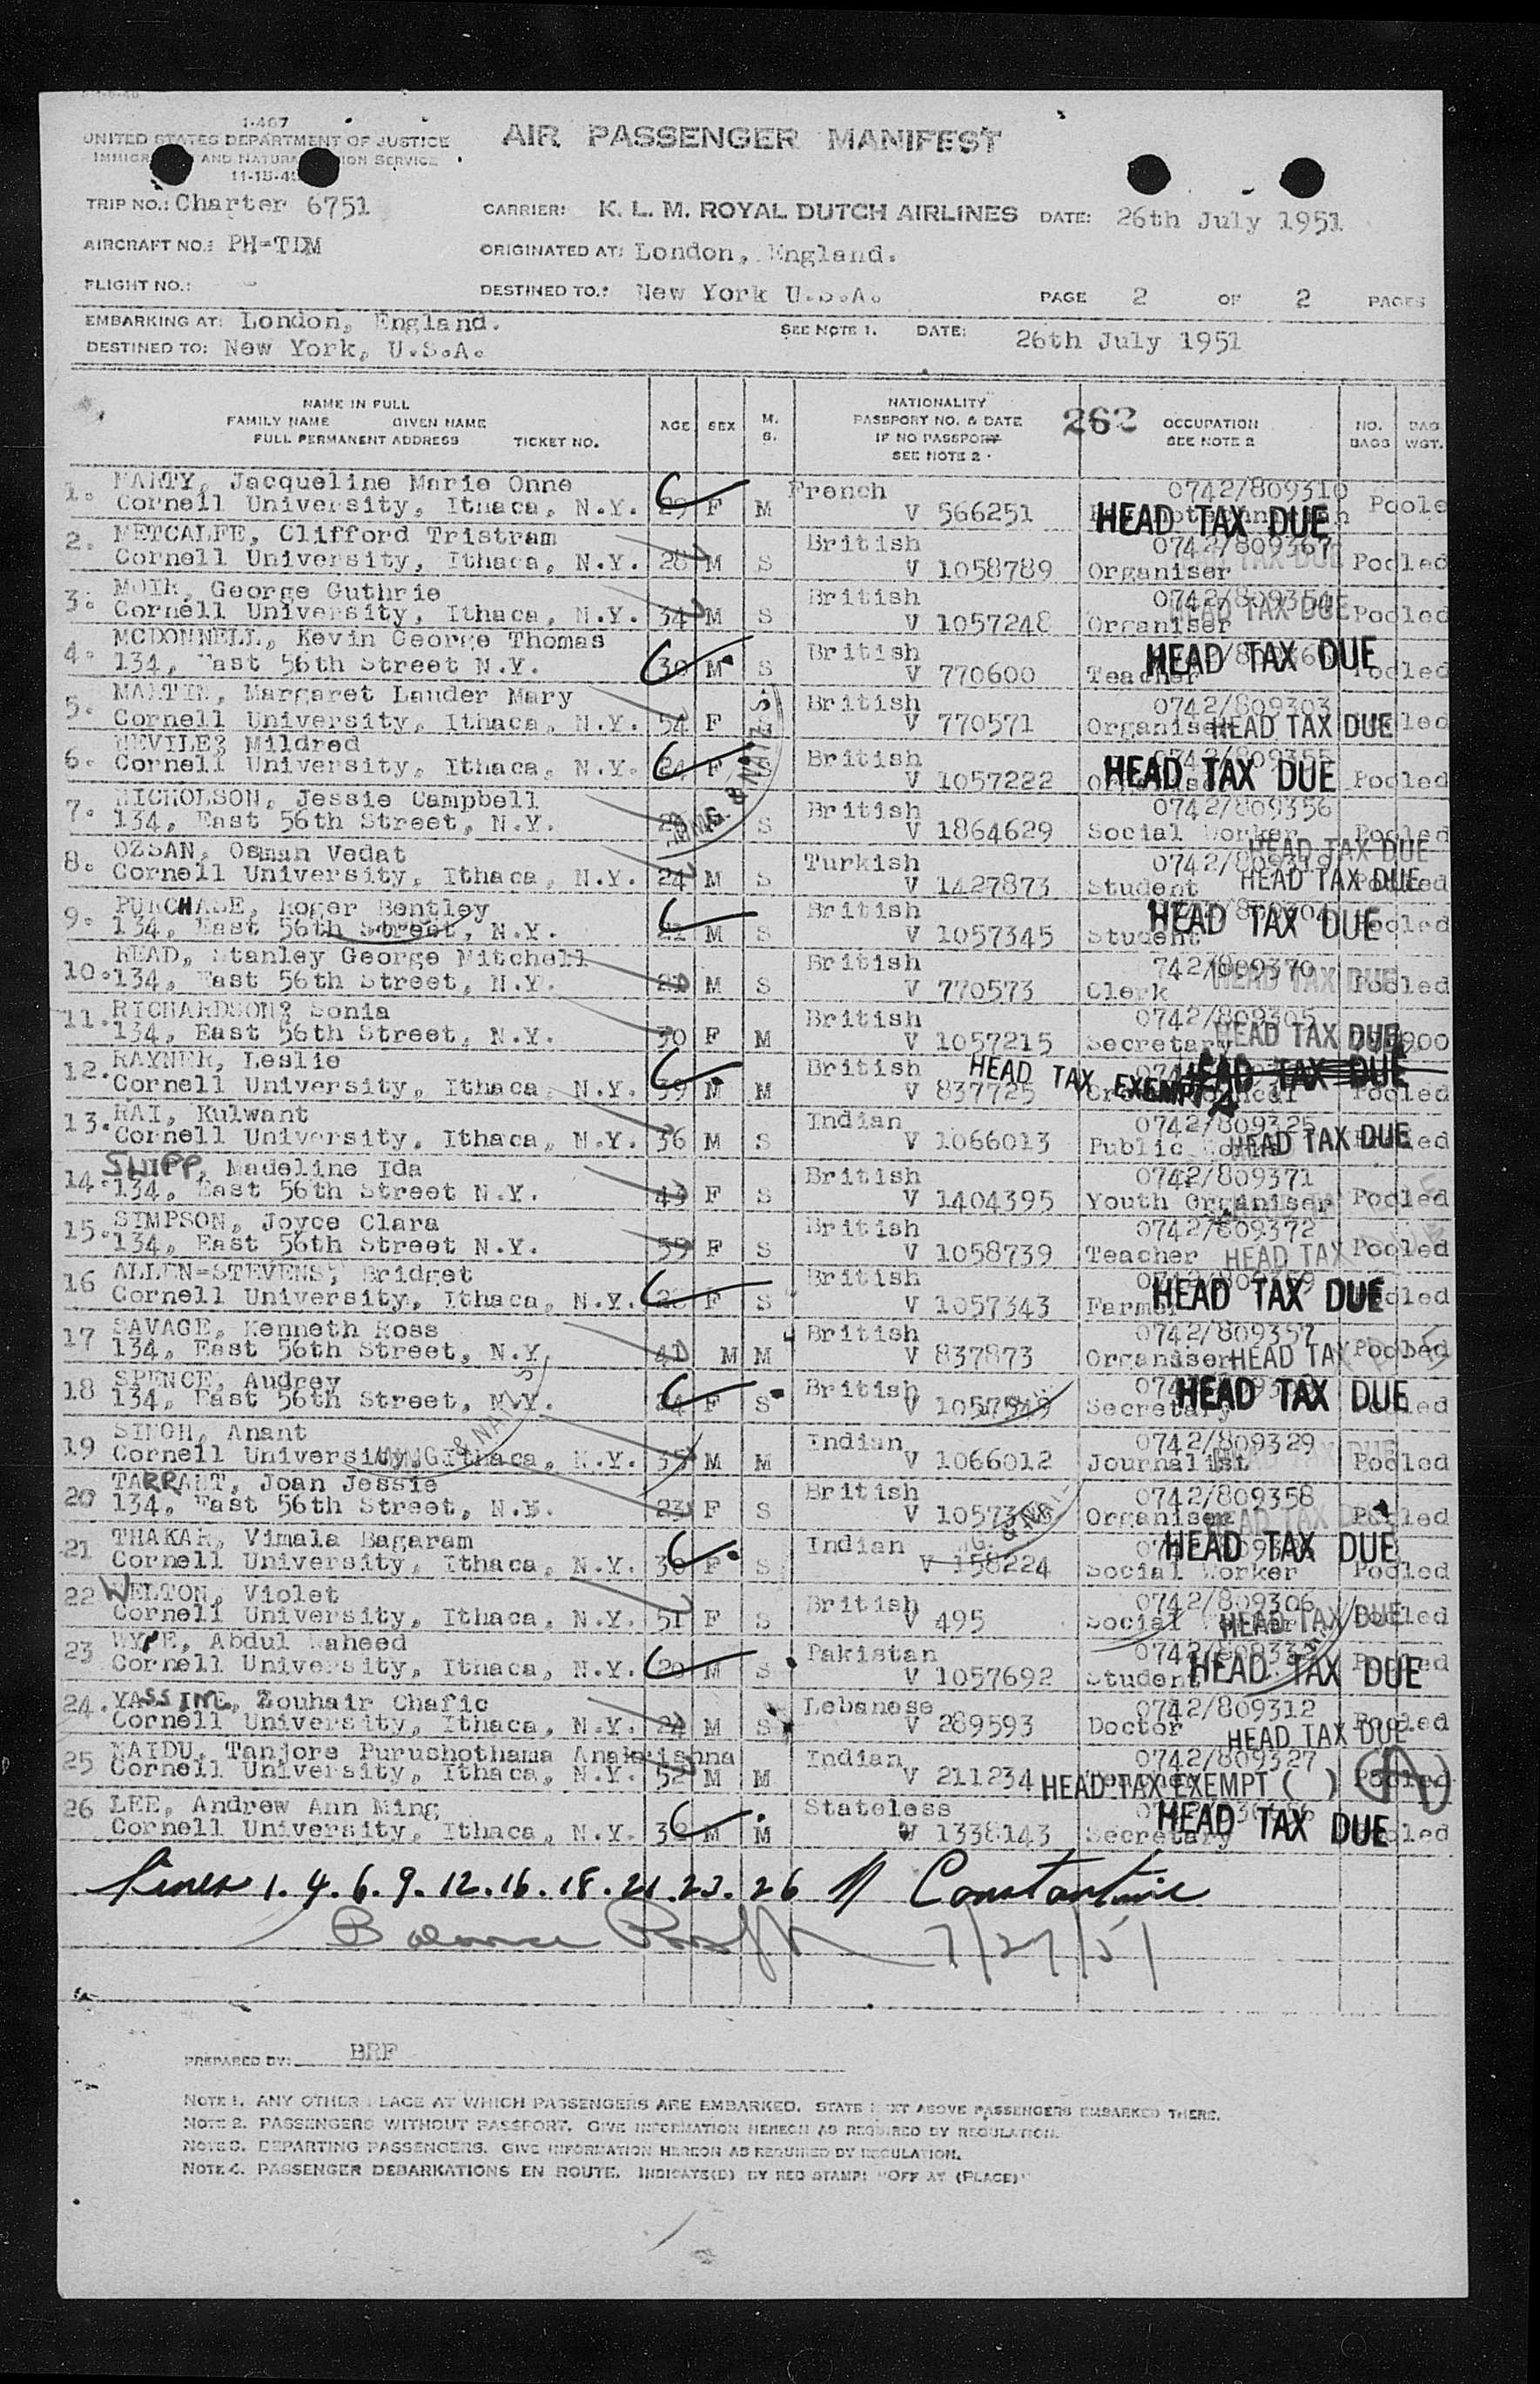 1-407
UNITED STATES DEPARTMENT OF JUSTICE
AND SERVICE
AIR PASSENGER MANIFEST
TRIP NO.: Charter 6751
CARRIER: K. L. M. ROYAL DUTCH AIRLINES DATE: 26th July 1951
AIRCRAFT NO.: PH-TDM
ORIGINATED AT: London, England.
FLIGHT NO.: -
DESTINED TO.: New York U.S.A.
PAGE 2 OF 2 PAGES
EMBARKING AT: London, England.
SEE NOTE 1. DATE: 26th July 1951
DESTINED TO: New York, U.S.A.
NAME IN FULL
FAMILY NAME GIVEN NAME
FULL PERMANENT ADDRESS TICKET NO.
AGE SEX M. S.
NATIONALITY
PASSPORT NO. & DATE
IF NO PASSPORT
SEE NOTE 2
262 OCCUPATION
SEE NOTE 2
NO. BAGS BAG WGT.
1. MARTY, Jacqueline Marie Onne French 0742/809310
Cornell University, Ithaca, N.Y. 29 F M V 566251 HEAD TAX DUE Poole
2. METCALFE, Clifford Tristram British 0742/809367
Cornell University, Ithaca, N.Y. 28 M S V 1058789 Organiser TAX DUE Pooled
3. MOIR, George Guthrie British 0742/809354
Cornell University, Ithaca, N.Y. 34 M S V 1057248 Organiser HEAD TAX DUE Pooled
4. MCDONNELL, Kevin George Thomas British
134, East 56th Street N.Y. 30 M S V 770600 Teacher HEAD TAX DUE Pooled
5. MARTIN, Margaret Lander Mary British 0742/809303
Cornell University, Ithaca, N.Y. 54 F V 770571 Organiser HEAD TAX DUE
6. NEVILE? Mildred British 0742/809355
Cornell University, Ithaca, N.Y. 24 F S V 1057222 HEAD TAX DUE Pooled
7. NICHOLSON, Jessie Campbell British 0742/809356
134, East 56th Street, N.Y. S V 1864629 Social Worker Pooled
HEAD TAX DUE
8. OZSAN, Osman Vedat Turkish
Cornell University, Ithaca, N.Y. 24 M S V 1427873 Student HEAD TAX DUE
9. PURCHASE, Roger Bentley British
134, East 56th Street, N.Y. 21 M S V 1057345 Student HEAD TAX DUE
10. READ, Stanley George Mitchell British 742/809370
134, East 56th Street, N.Y. M S V 770573 Clerk HEAD TAX DUE Pooled
11. RICHARDSON? Sonia British 0742/809305
134, East 56th Street, N.Y. 30 F M V 1057215 Secretary HEAD TAX DUE
12. RAYNER, Leslie British HEAD TAX EXEMPT HEAD TAX DUE
Cornell University, Ithaca, N.Y. 39 M M V 837725 Pooled
13. RAI, Kulwant Indian 0742/809325
Cornell University, Ithaca, N.Y. 36 M S V 1066013 Public HEAD TAX DUE
14. SHIPP, Madeline Ida British 0742/809371
134, East 56th Street N.Y. 43 F S V 1404395 Youth Organiser Pooled
15. SIMPSON, Joyce Clara British 0742/809372
134, East 56th Street N.Y. 59 F S V 1058739 Teacher HEAD TAX Pooled
16 ALLEN-STEVENS, Bridget British
Cornell University, Ithaca, N.Y. F S V 1057343 Farmer HEAD TAX DUE
17 SAVAGE, Kenneth Ross British 0742/809357
134, East 56th Street, N.Y. 41 M M V 837873 Organiser HEAD TAX Pooled
18 SPENCE, Audrey British
134, East 56th Street, N.Y. 24 F S Secretary HEAD TAX DUE
19 SINGH, Anant Indian 0742/809329
Cornell University, Ithaca, N.Y. 35 M M V 1066012 Journalist Pooled
20 TARRANT, Joan Jessie British 0742/809358
134, East 56th Street, 23 F S Organiser HEAD TAX Pooled
21 THAKAR, Vimala Bagaram Indian HEAD TAX DUE
Cornell University, Ithaca, N.Y. 30 F S V 158224 Social Worker Pooled
22 WELTON, Violet British 0742/809306
Cornell University, Ithaca, N.Y. 51 F S V 495 Social HEAD TAX DUE
23 Abdul Waheed Pakistan
Cornell University, Ithaca, N.Y. 20 M S V 1057692 Student HEAD TAX DUE
24. YASSINE, Zouhair Chafic Lebanese 0742/809312
Cornell University, Ithaca, N.Y. 24 M S V 289593 Doctor HEAD TAX DUE
25 NAIDU, Tanjore Purushothama Indian 0742/809327
Cornell University, Ithaca, N.Y. 52 M M V 211234 HEAD TAX EXEMPT ( ) (A)
26 LEE, Andrew Ann Ming Stateless
Cornell University, Ithaca, N.Y. M M V 1338143 Secretary HEAD TAX DUE
Lines 1. 4. 6. 9. 12. 16. 18. 21. 23. 26 Constantine
Balance 7/27/51
PREPARED BY: BRF
NOTE 1. ANY OTHER PLACE AT WHICH PASSENGERS ARE EMBARKED. STATE NEXT ABOVE PASSENGERS EMBARKED THERE.
NOTE 2. PASSENGERS WITHOUT PASSPORT. GIVE INFORMATION HEREON AS REQUIRED BY REGULATION.
NOTE 3. DEPARTING PASSENGERS. GIVE INFORMATION HEREON AS REQUIRED BY REGULATION.
NOTE 4. PASSENGER DEBARKATIONS EN ROUTE. INDICATE(D) BY RED STAMP: "OFF AT (PLACE)"